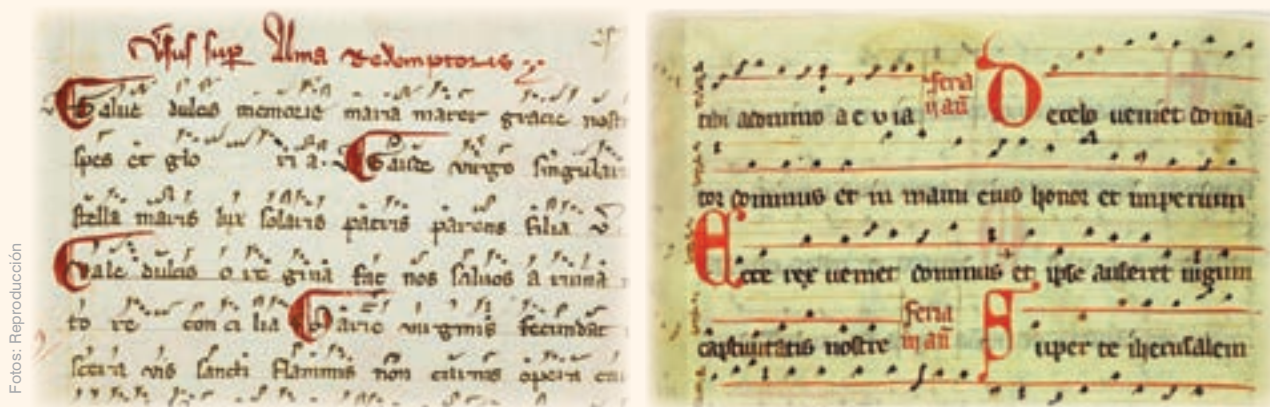 Vsus sup Alma Redemptoris
Salue dulcis memorie maria mater gracie nostr
spes et glo ri a. Gaude virgo singulari
stella maris lux solaris patris parens filia
Vale dulcis o re gina fac nos saluos a ruina
to re con ci lia Marie virginis fecundat
vis sancti flaminis non carnis opera
tibi ac via feria an De celo ueniet domina
tor dominus et in manu eius honor et imperium
Ecce rex ueniet dominus et ipse auferet iugum
captiuitatis nostre feria an Super te iherusalem
Fotos: Reproducción